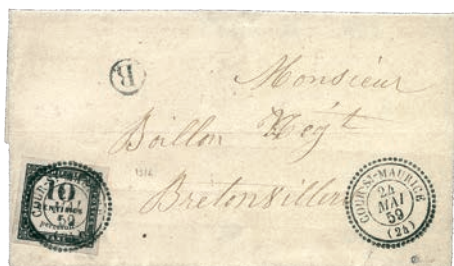 B
Monsieur
Boillon Négt
Bretonvillers
10
CENTIMES
COUR-ST-MAURICE
24
MAI
59
(24)